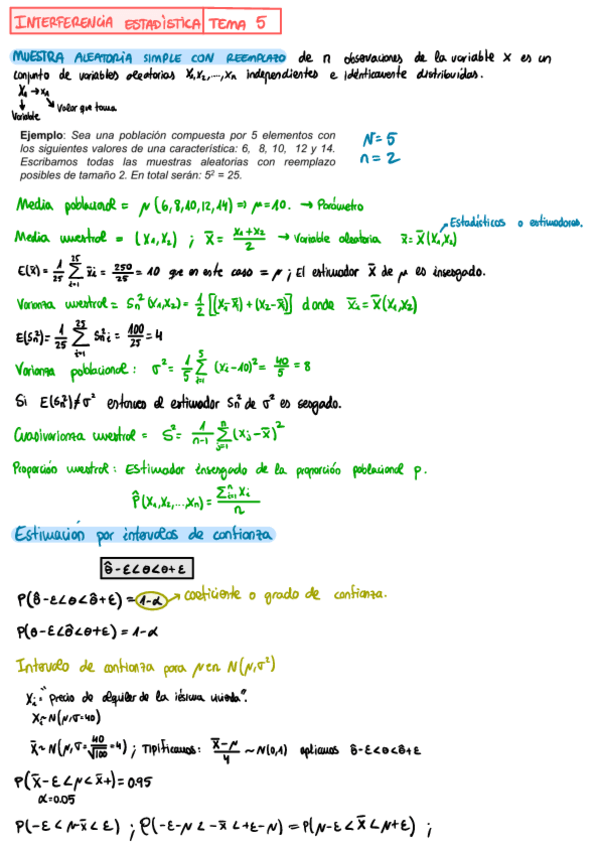 INTERFERENCIA ESTADÍSTICA TEMA 5
MUESTRA ALEATORIA SIMPLE CON REEMPLAZO de n observaciones de la variable X es un
conjunto de variables aleatorias X₁,X₂,...,Xn independientes e idénticamente distribuidas.
X₁ → x₁
Variable
Valor que toma
Ejemplo: Sea una población compuesta por 5 elementos con
los siguientes valores de una característica: 6, 8, 10, 12 y 14.
Escribamos todas las muestras aleatorias con reemplazo
posibles de tamaño 2. En total serán: 5² = 25.
N=5
n=2
Media poblacional = μ(6,8,10,12,14) ⇒ μ=10. → Parámetro
Estadísticos o estimadores.
Media muestral = (X₁,X₂) ; X̄ = (X₁+X₂)/2 → Variable aleatoria x̄=X̄(X₁,X₂)
E(x̄)= 1/25 Σ²⁵ᵢ₌₁ x̄ᵢ = 250/25 = 10 que en este caso = μ ; El estimador X̄ de μ es insesgado.
Varianza muestral = Sn²(X₁,X₂) = 1/2 [(X₁-X̄)+(X₂-X̄)] donde X̄ᵢ=X̄(X₁,X₂)
E(Sn²)= 1/25 Σ²⁵ᵢ₌₁ Sn²ᵢ = 100/25 = 4
Varianza poblacional: σ² = 1/5 Σ⁵ᵢ₌₁ (xᵢ-10)² = 40/5 = 8
Si E(Sn²)≠σ² entonces el estimador Sn² de σ² es sesgado.
Cuasivarianza muestral = S² = 1/(n-1) Σⁿⱼ₌₁ (xⱼ-x̄)²
Proporción muestral: Estimador insesgado de la proporción poblacional p.
P̂(X₁,X₂,...,Xn) = Σⁿᵢ₌₁ Xᵢ / n
Estimación por intervalos de confianza
θ̂-ε<θ<θ̂+ε
P(θ̂-ε<θ<θ̂+ε) = 1-α → coeficiente o grado de confianza.
P(θ-ε<θ̂<θ+ε) = 1-α
Intervalo de confianza para μ en N(μ,σ²)
Xᵢ="Precio de alquiler de la iésima vivienda".
Xᵢ~N(μ,σ=40)
X̄~N(μ,σ=40/√100=4) ; Tipificamos: (X̄-μ)/4 ~N(0,1) aplicamos θ̂-ε<θ<θ̂+ε
P(X̄-ε<μ<X̄+)=0.95
α=0.05
P(-ε<μ-X̄<ε) ; P(-ε-μ<-X̄<+ε-μ) = P(μ-ε<X̄<μ+ε) ;